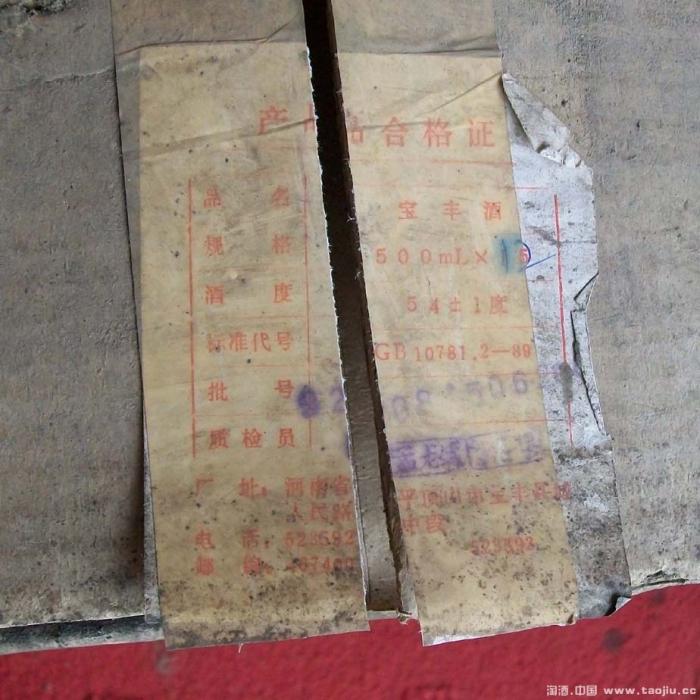 产品合格证
品名 宝丰酒
规格 500mL×12
酒度 54±1度
标准代号 GB10781.2—89
批号
质检员
厂址:河南省平顶山市宝丰县城
人民路中段
电话:523592 523593
邮编:467400
淘酒.中国 www.taojiu.cc